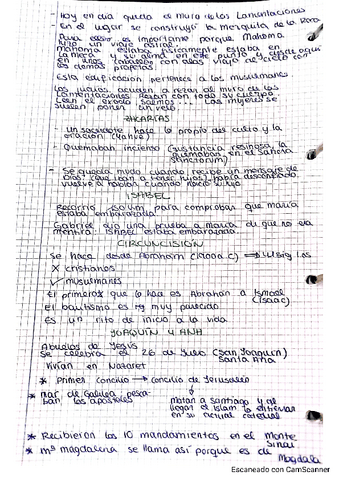 - Hoy en día queda el muro de las Lamentaciones
En el lugar se construyó la mezquita de la Roca
Para ellos es importante porque Mahoma
hizo un viaje astral.
Mahoma estaba físicamente estaba en
la meca y su alma en este punto y desde aquí
en unos caballos con alas viajó al cielo con
los demás profetas
Esta edificación pertenece a los musulmanes.
Los judíos acuden a rezar al muro de las
lamentaciones. Rezan con todo su cuerpo.
Leen el exodo salmos... Las mujeres se
suelen poner un velo.
ZACARÍAS
- Un sacerdote hace lo propio del culto y la
oración (Yahvé)
- Quemaban incienso (sustancia resinosa, la
quemaban en el sancta
sanctorum)
- Se quedó mudo cuando recibe un mensaje de
Dios (que iban a tener hijos) había desconfiado,
vuelve a hablar cuando nació su hijo
ISABEL
Recorrió 150km para comprobar que maría
estaba embarazada.
Gabriel dio una prueba a maría de que no era
mentira: Isabel estaba embarazada.
CIRCUNCISIÓN
Se hace desde Abraham (1800a.c) → U sig los
X cristianos
✓ musulmanes
El primeros que lo hace es Abrahán a Ismael
(Isaac)
El bautismo es rq muy parecido
Es un rito de inicio a la vida
JOAQUÍN y ANA
Abuelos de Jesús
Se celebra el 26 de Julio (San Joaquín)
Santa Ana
Vivían en Nazaret
* Primer concilio → concilio de Jerusalén
* mar de Galilea pesca-
ban los apóstoles
matan a santiago y al
llegar el islam lo entierran
en su actual catedral
* Recibieron los 10 mandamientos en el Monte
Sinaí
* mª magdalena se llama así porque es de
Magdala
Escaneado con CamScanner